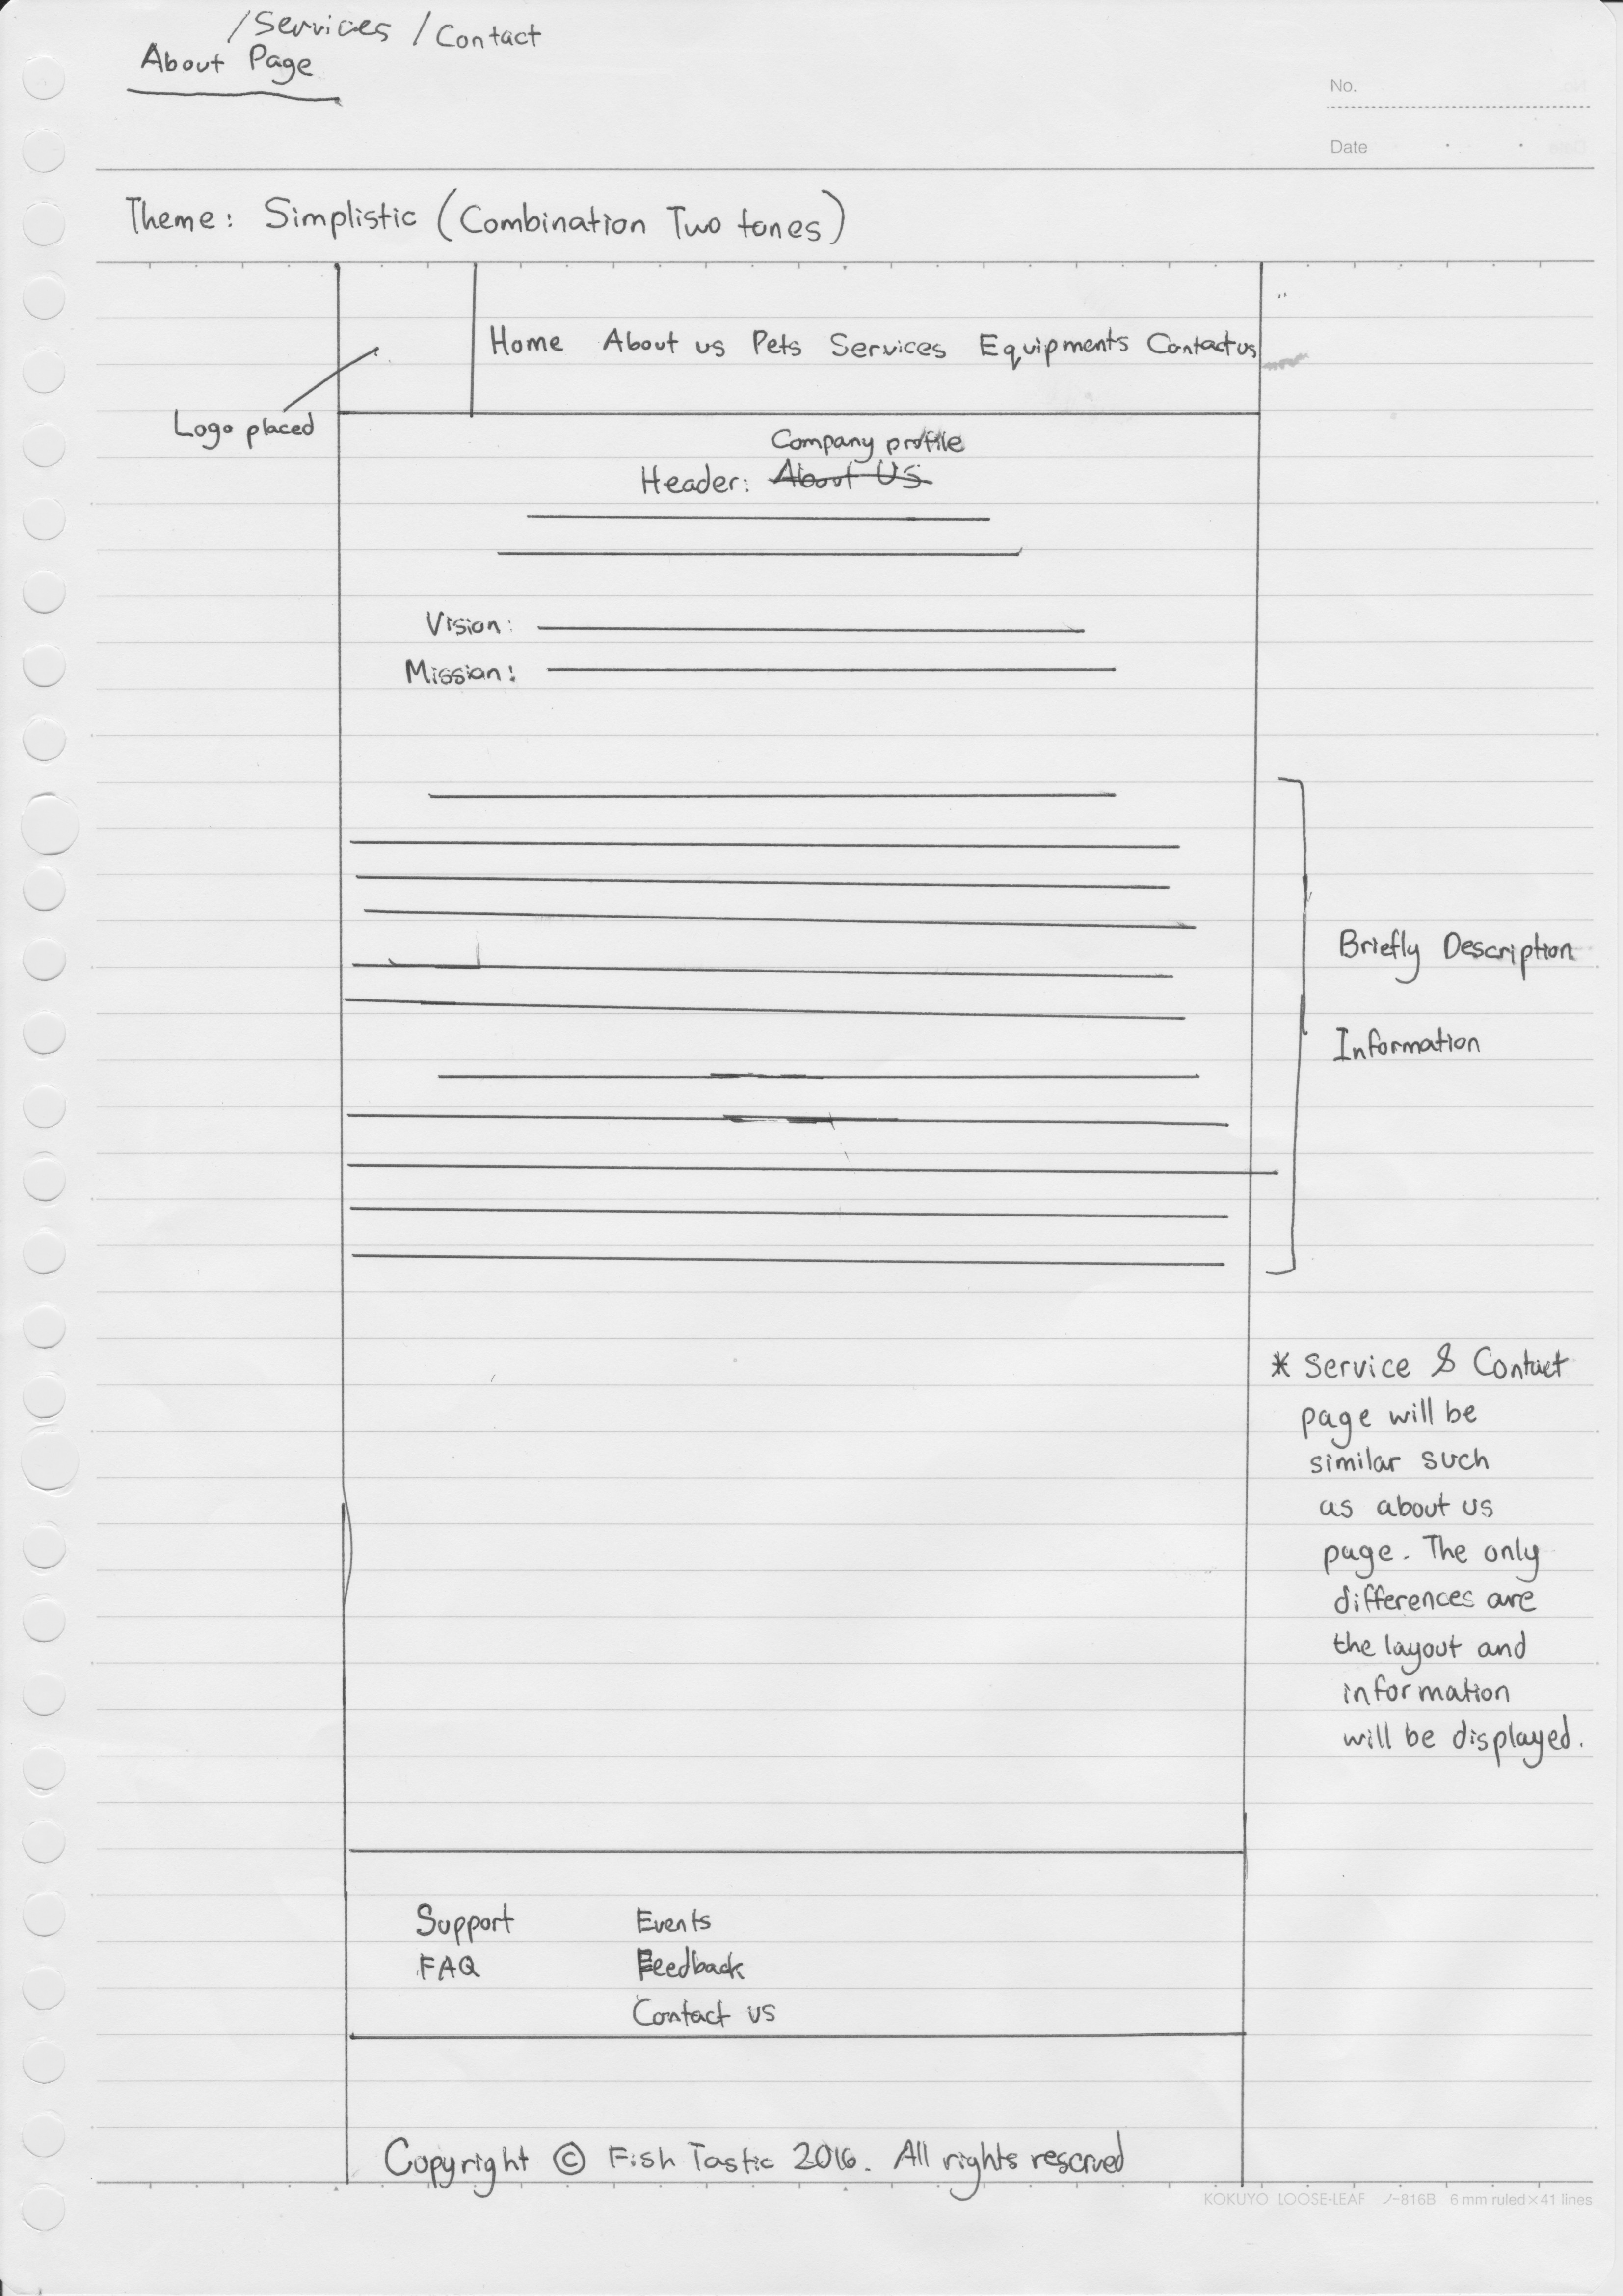 /Services /Contact
About Page
No.
Date
Theme: Simplistic (Combination Two tones)
Home About us Pets Services Equipments Contact us
Logo placed
Company profile
Header: About US
Vision:
Mission:
Briefly Description
Information
* Service & Contact
page will be
similar such
as about us
page. The only
differences are
the layout and
information
will be displayed.
Support Events
FAQ Feedback
Contact us
Copyright © Fish Tastic 2016. All rights reserved
KOKUYO LOOSE-LEAF ノ-816B 6 mm ruled×41 lines